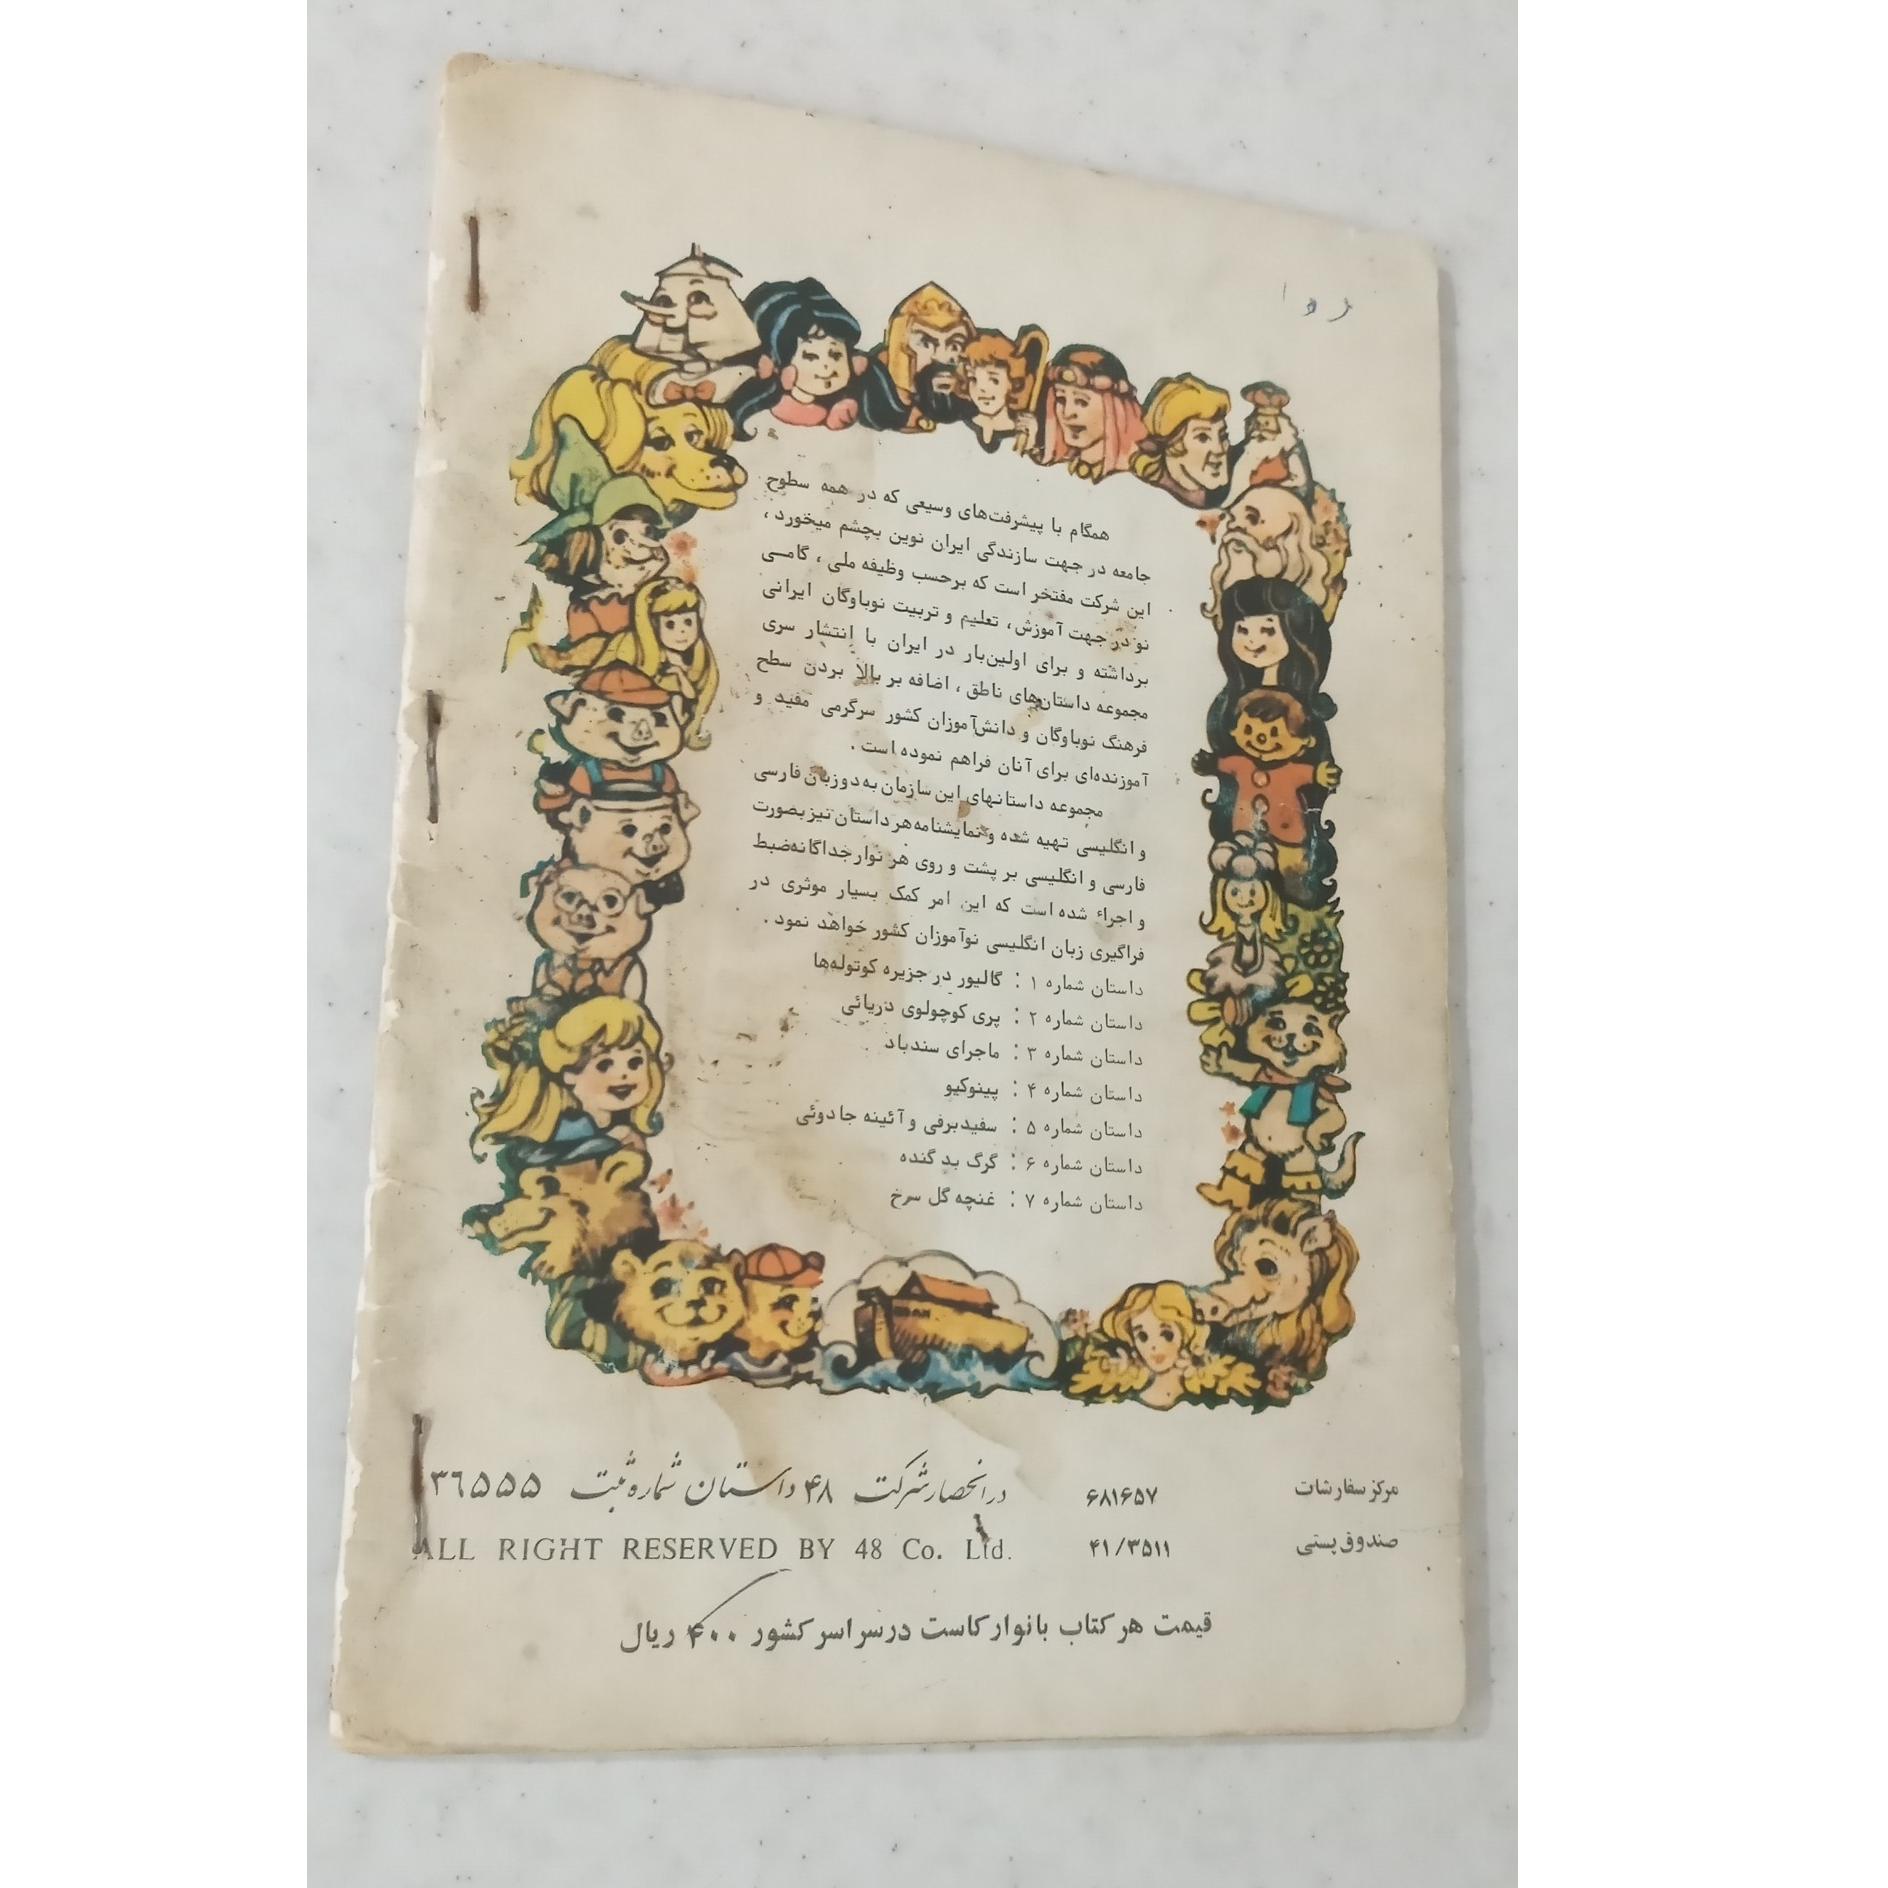 همگام با پیشرفت‌های وسیعی که در همه سطوح
جامعه در جهت سازندگی ایران نوین بچشم میخورد ،
این شرکت مفتخر است که برحسب وظیفه ملی ، گامی
نو در جهت آموزش ، تعلیم و تربیت نوباوگان ایرانی
برداشته و برای اولین‌بار در ایران با انتشار سری
مجموعه داستان‌های ناطق ، اضافه بر بالا بردن سطح
فرهنگ نوباوگان و دانش‌آموزان کشور سرگرمی مفید و
آموزنده‌ای برای آنان فراهم نموده است .
مجموعه داستانهای این سازمان به دو زبان فارسی
و انگلیسی تهیه شده و نمایشنامه هر داستان نیز بصورت
فارسی و انگلیسی بر پشت و روی هر نوار جداگانه ضبط
و اجراء شده است که این امر کمک بسیار موثری در
فراگیری زبان انگلیسی نوآموزان کشور خواهد نمود .
داستان شماره ۱ : گالیور در جزیره کوتوله‌ها
داستان شماره ۲ : پری کوچولوی دریائی
داستان شماره ۳ : ماجرای سندباد
داستان شماره ۴ : پینوکیو
داستان شماره ۵ : سفیدبرفی و آئینه جادوئی
داستان شماره ۶ : گرگ بد گنده
داستان شماره ۷ : غنچه گل سرخ
مرکز سفارشات ۶۸۱۶۵۷
در انحصار شرکت ۴۸ داستان شماره ثبت ۳۶۵۵۵
صندوق پستی ۴۱/۳۵۱۱
ALL RIGHT RESERVED BY 48 Co. Ltd.
قیمت هر کتاب با نوار کاست در سراسر کشور ۴۰۰ ریال